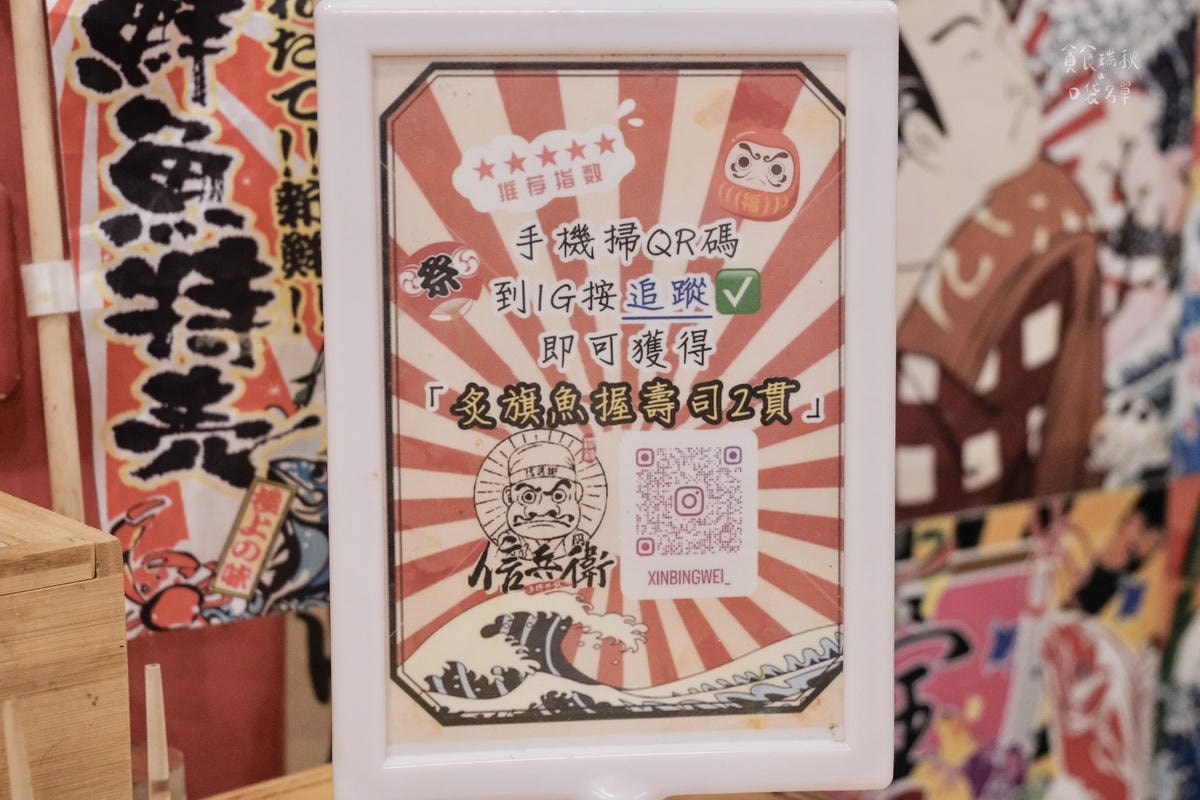 鮮魚特売
れたて!!新鮮!!
極上の味
貪食瑞秋
の
口袋名單
★★★★★
推荐指数
福
祭
手機掃QR碼
到IG按追蹤✅
即可獲得
「炙旗魚握壽司2貫」
信兵衛
XINBINGWEI_